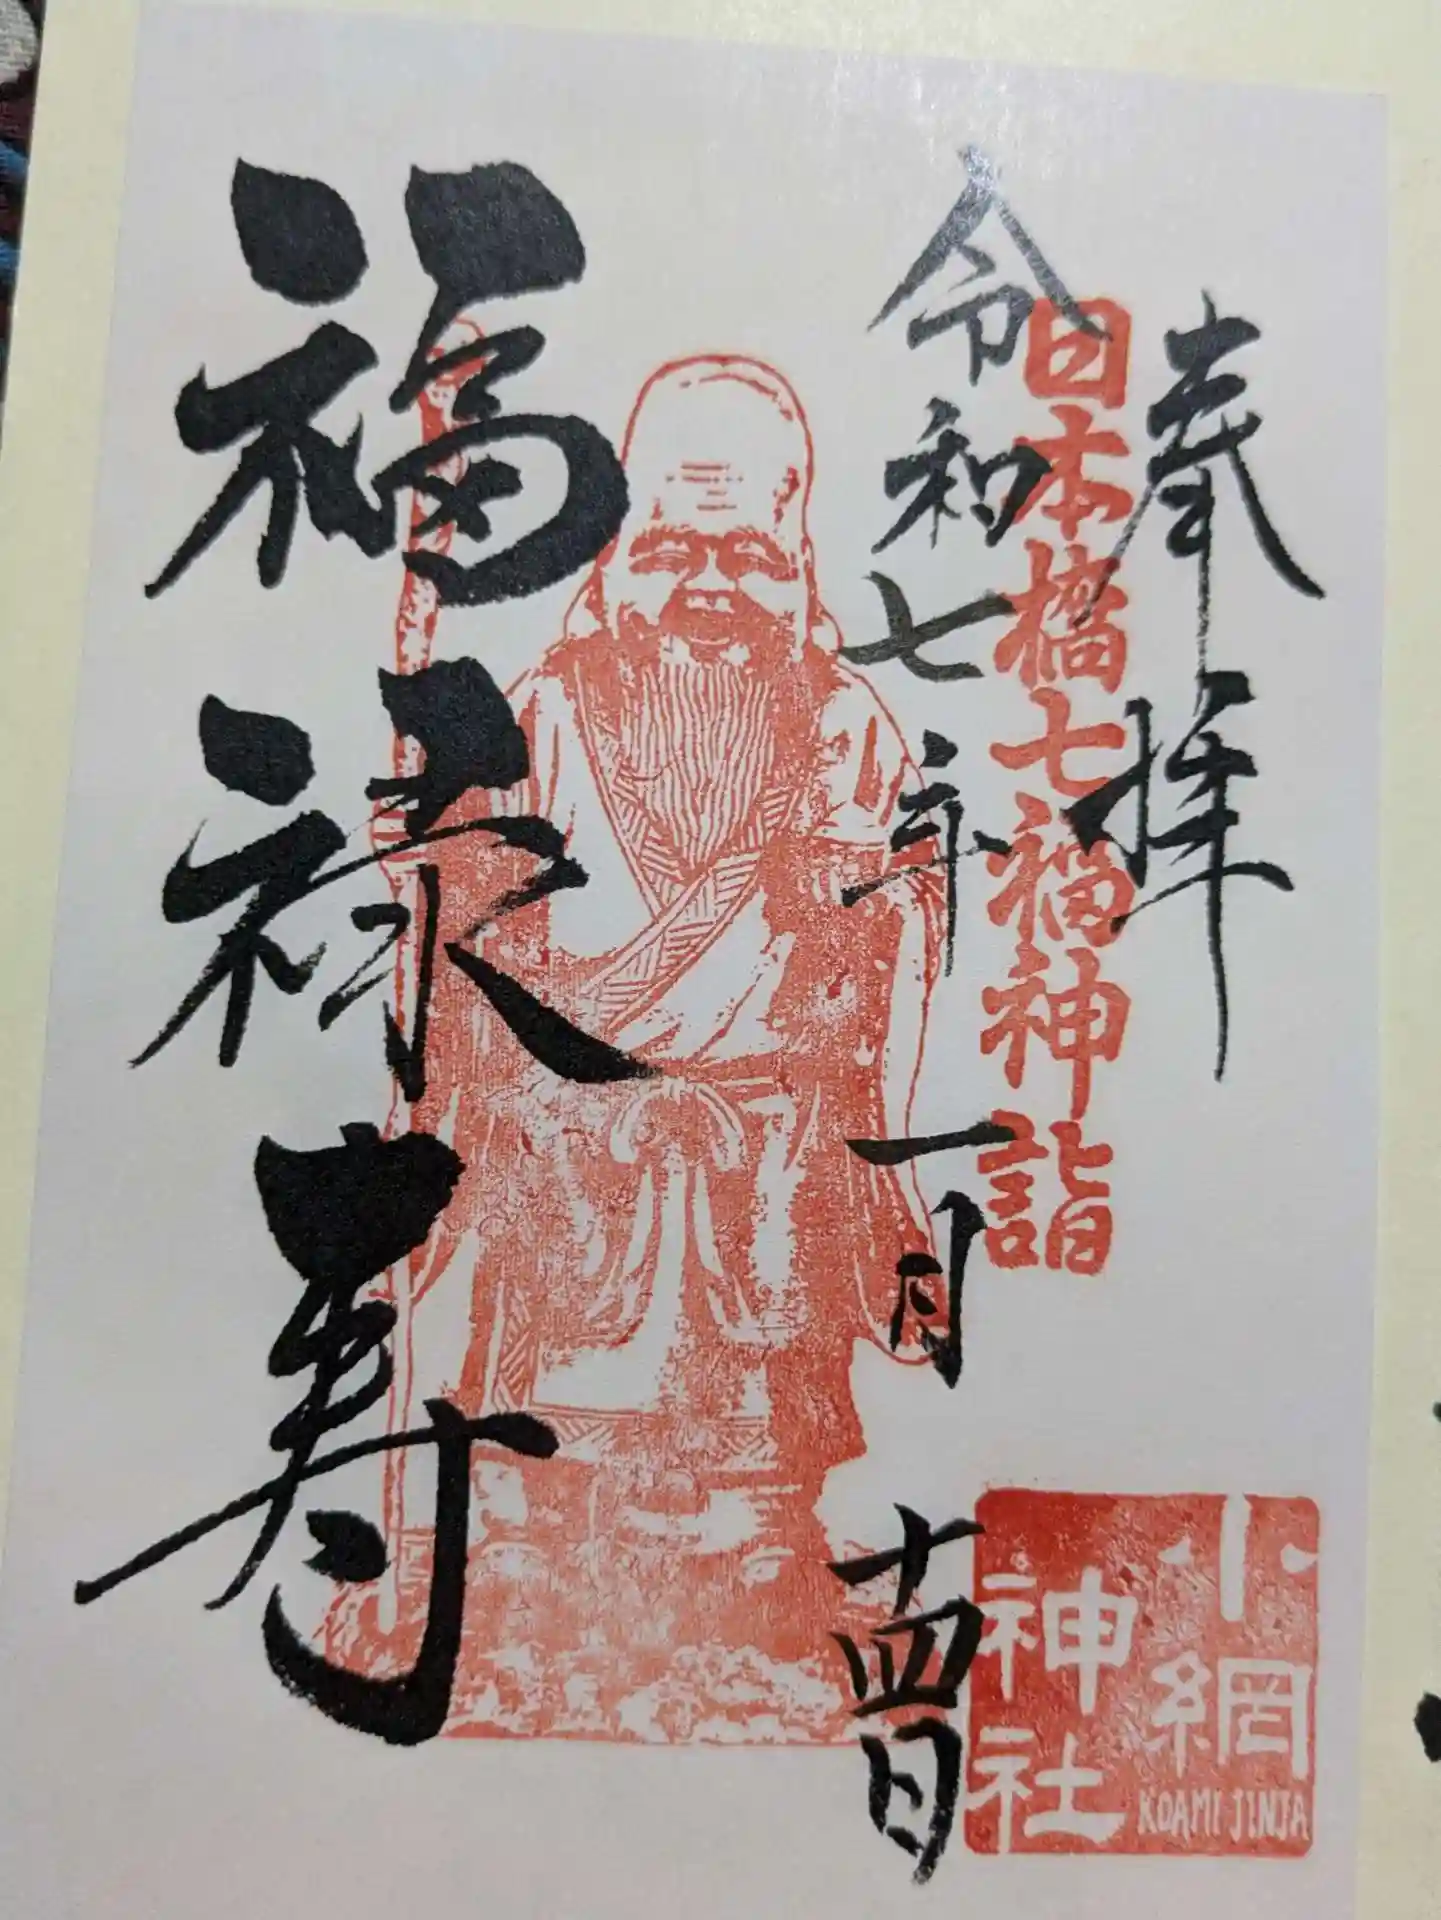 奉拝
日本橋七福神詣
令和七年一月十四日
福禄寿
小網
神社
KOAMI JINJA